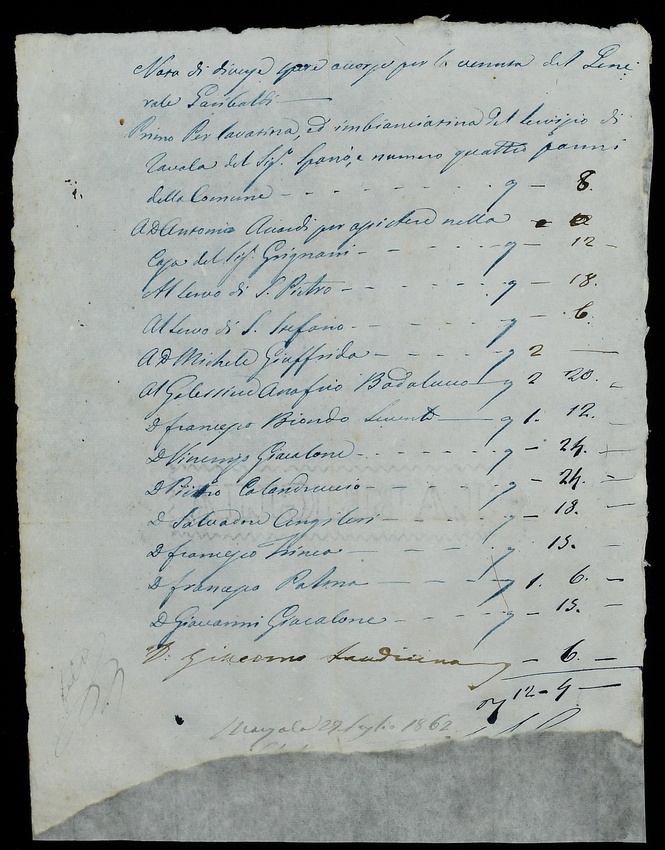 Nota di diverse spese occorse per la venuta del Gene:
rale Garibaldi —
Primo Per lavatina, ed imbianciatina del servizio di
tavola del Sig.r Spanò, e numero quattro panni
della Comune - - - - - 8.
A D Antonio per nella
Casa del Sig.r Grignani - - - - 12 -
Al servo di S. Pietro - - - - 18.
Al servo di S. Stefano - - - - 6.
A D Michele Giuffrida - - - 2 —
Al Onofrio Badalucco 2 20. -
D. Francesco Biondo 1. 12. -
D Vincenzo Giacalone - - - - 24. -
D Pietro Calandruccio - - - - 24. -
D Salvadre Angileri - 18. -
D. Francesco - - - 15. -
D. Francesco Patma - - - 1. 6. -
D Giovanni Giacalone - - - 15. -
D. Giacomo - 6. -
12 - 4 —
Marsala 29 luglio 1862